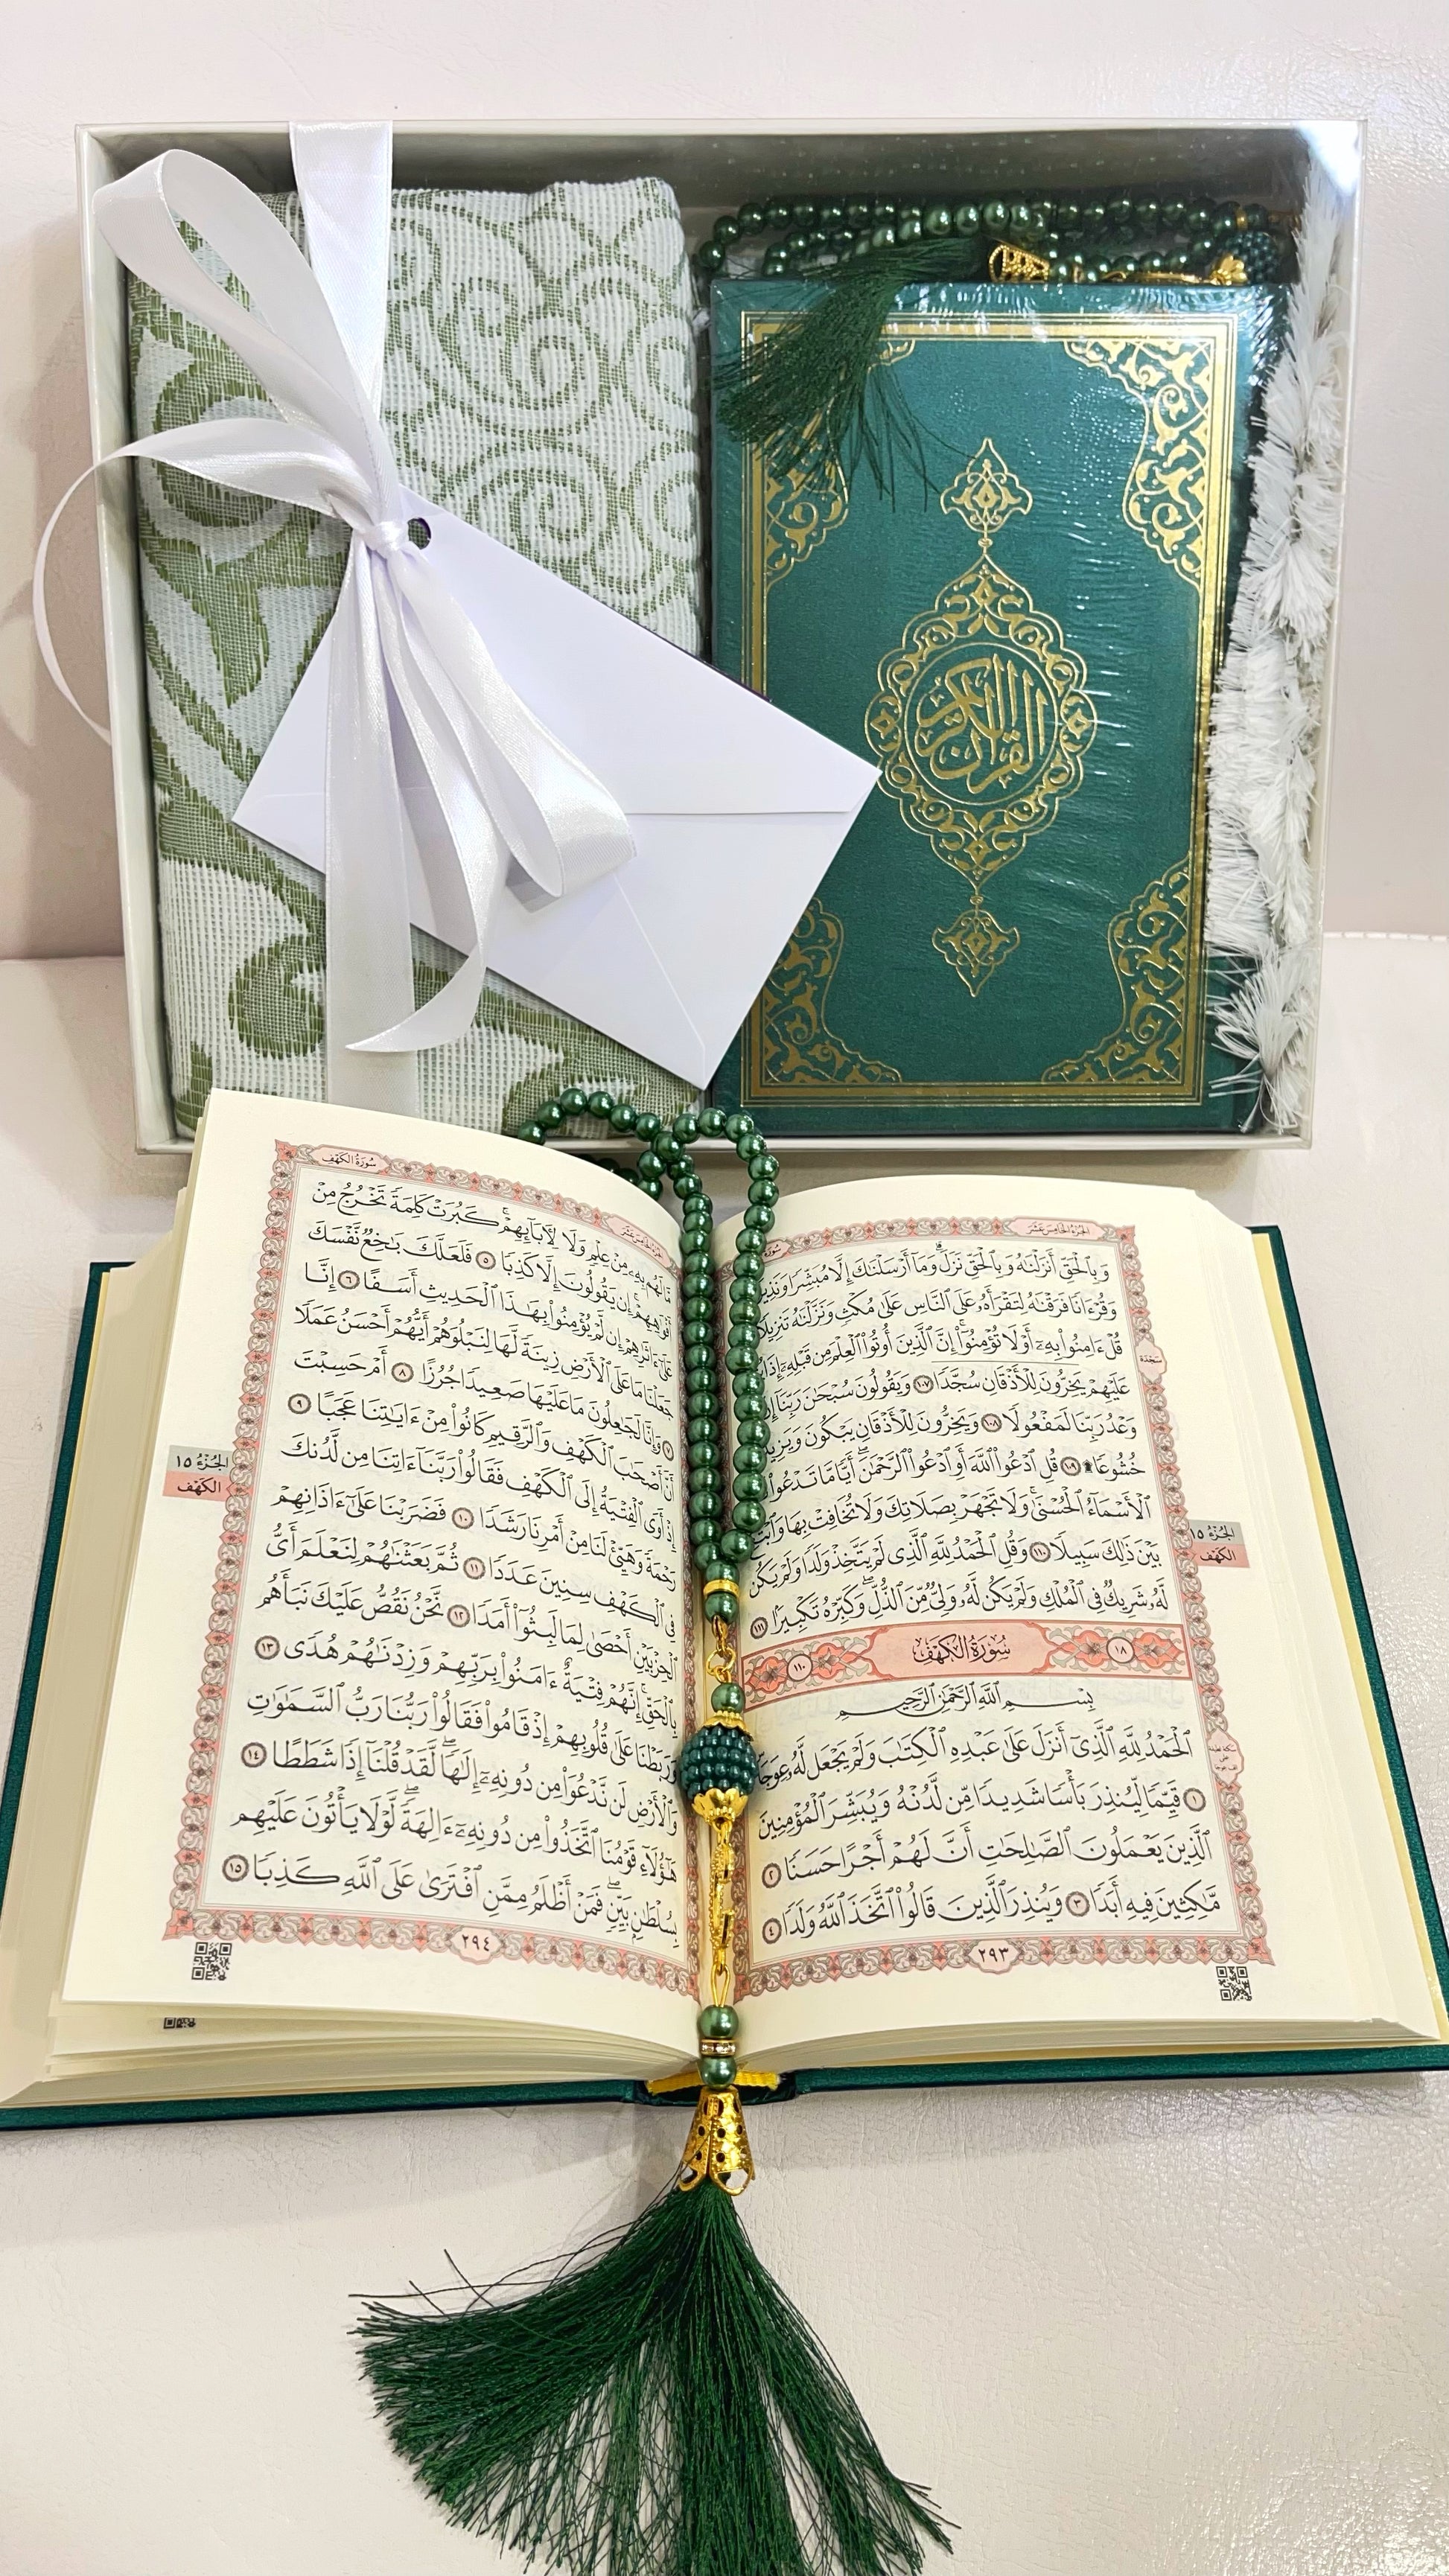 القرآن الكريم
الجزء الخامس عشر
وَبِٱلْحَقِّ أَنزَلْنَٰهُ وَبِٱلْحَقِّ نَزَلَ ۗ وَمَآ أَرْسَلْنَٰكَ إِلَّا مُبَشِّرًا وَنَذِيرًا
وَقُرْءَانًا فَرَقْنَٰهُ لِتَقْرَأَهُۥ عَلَى ٱلنَّاسِ عَلَىٰ مُكْثٍ وَنَزَّلْنَٰهُ تَنزِيلًا
قُلْ ءَامِنُوا۟ بِهِۦٓ أَوْ لَا تُؤْمِنُوٓا۟ ۚ إِنَّ ٱلَّذِينَ أُوتُوا۟ ٱلْعِلْمَ مِن قَبْلِهِۦٓ إِذَا
سجدة
عَلَيْهِمْ يَخِرُّونَ لِلْأَذْقَانِ سُجَّدًا ١٠٧ وَيَقُولُونَ سُبْحَٰنَ رَبِّنَآ إِن
وَعْدُ رَبِّنَا لَمَفْعُولًا ١٠٨ وَيَخِرُّونَ لِلْأَذْقَانِ يَبْكُونَ وَيَزِيدُ
خُشُوعًا ۩ ١٠٩ قُلِ ٱدْعُوا۟ ٱللَّهَ أَوِ ٱدْعُوا۟ ٱلرَّحْمَٰنَ ۖ أَيًّا مَّا تَدْعُوا۟
ٱلْأَسْمَآءُ ٱلْحُسْنَىٰ ۚ وَلَا تَجْهَرْ بِصَلَاتِكَ وَلَا تُخَافِتْ بِهَا وَٱبْتَغِ
بَيْنَ ذَٰلِكَ سَبِيلًا ١١٠ وَقُلِ ٱلْحَمْدُ لِلَّهِ ٱلَّذِى لَمْ يَتَّخِذْ وَلَدًا وَلَمْ يَكُن
لَّهُۥ شَرِيكٌ فِى ٱلْمُلْكِ وَلَمْ يَكُن لَّهُۥ وَلِىٌّ مِّنَ ٱلذُّلِّ ۖ وَكَبِّرْهُ تَكْبِيرًا ١١١
الجزء ١٥
الكهف
١٨ سُورَةُ الكَهْفِ ١١٠
بِسْمِ ٱللَّهِ ٱلرَّحْمَٰنِ ٱلرَّحِيمِ
ٱلْحَمْدُ لِلَّهِ ٱلَّذِىٓ أَنزَلَ عَلَىٰ عَبْدِهِ ٱلْكِتَٰبَ وَلَمْ يَجْعَل لَّهُۥ عِوَجَا
١ قَيِّمًا لِّيُنذِرَ بَأْسًا شَدِيدًا مِّن لَّدُنْهُ وَيُبَشِّرَ ٱلْمُؤْمِنِينَ
ٱلَّذِينَ يَعْمَلُونَ ٱلصَّٰلِحَٰتِ أَنَّ لَهُمْ أَجْرًا حَسَنًا ٢
مَّٰكِثِينَ فِيهِ أَبَدًا ٣ وَيُنذِرَ ٱلَّذِينَ قَالُوا۟ ٱتَّخَذَ ٱللَّهُ وَلَدًا ٤
٢٩٣
الجزء الخامس عشر
سُورَةُ الكَهْفِ
مَّا لَهُم بِهِۦ مِنْ عِلْمٍ وَلَا لِـَٔابَآئِهِمْ ۚ كَبُرَتْ كَلِمَةً تَخْرُجُ مِنْ
أَفْوَٰهِهِمْ ۚ إِن يَقُولُونَ إِلَّا كَذِبًا ٥ فَلَعَلَّكَ بَٰخِعٌ نَّفْسَكَ
عَلَىٰٓ ءَاثَٰرِهِمْ إِن لَّمْ يُؤْمِنُوا۟ بِهَٰذَا ٱلْحَدِيثِ أَسَفًا ٦ إِنَّا
جَعَلْنَا مَا عَلَى ٱلْأَرْضِ زِينَةً لَّهَا لِنَبْلُوَهُمْ أَيُّهُمْ أَحْسَنُ عَمَلًا
٧ وَإِنَّا لَجَٰعِلُونَ مَا عَلَيْهَا صَعِيدًا جُرُزًا ٨ أَمْ حَسِبْتَ
أَنَّ أَصْحَٰبَ ٱلْكَهْفِ وَٱلرَّقِيمِ كَانُوا۟ مِنْ ءَايَٰتِنَا عَجَبًا ٩
إِذْ أَوَى ٱلْفِتْيَةُ إِلَى ٱلْكَهْفِ فَقَالُوا۟ رَبَّنَآ ءَاتِنَا مِن لَّدُنكَ
رَحْمَةً وَهَيِّئْ لَنَا مِنْ أَمْرِنَا رَشَدًا ١٠ فَضَرَبْنَا عَلَىٰٓ ءَاذَانِهِمْ
فِى ٱلْكَهْفِ سِنِينَ عَدَدًا ١١ ثُمَّ بَعَثْنَٰهُمْ لِنَعْلَمَ أَىُّ
ٱلْحِزْبَيْنِ أَحْصَىٰ لِمَا لَبِثُوٓا۟ أَمَدًا ١٢ نَّحْنُ نَقُصُّ عَلَيْكَ نَبَأَهُم
بِٱلْحَقِّ ۚ إِنَّهُمْ فِتْيَةٌ ءَامَنُوا۟ بِرَبِّهِمْ وَزِدْنَٰهُمْ هُدًى ١٣
وَرَبَطْنَا عَلَىٰ قُلُوبِهِمْ إِذْ قَامُوا۟ فَقَالُوا۟ رَبُّنَا رَبُّ ٱلسَّمَٰوَٰتِ
وَٱلْأَرْضِ لَن نَّدْعُوَا۟ مِن دُونِهِۦٓ إِلَٰهًا ۖ لَّقَدْ قُلْنَآ إِذًا شَطَطًا ١٤
هَٰٓؤُلَآءِ قَوْمُنَا ٱتَّخَذُوا۟ مِن دُونِهِۦٓ ءَالِهَةً ۖ لَّوْلَا يَأْتُونَ عَلَيْهِم
بِسُلْطَٰنٍۭ بَيِّنٍ ۖ فَمَنْ أَظْلَمُ مِمَّنِ ٱفْتَرَىٰ عَلَى ٱللَّهِ كَذِبًا ١٥
الجزء ١٥
الكهف
٢٩٤